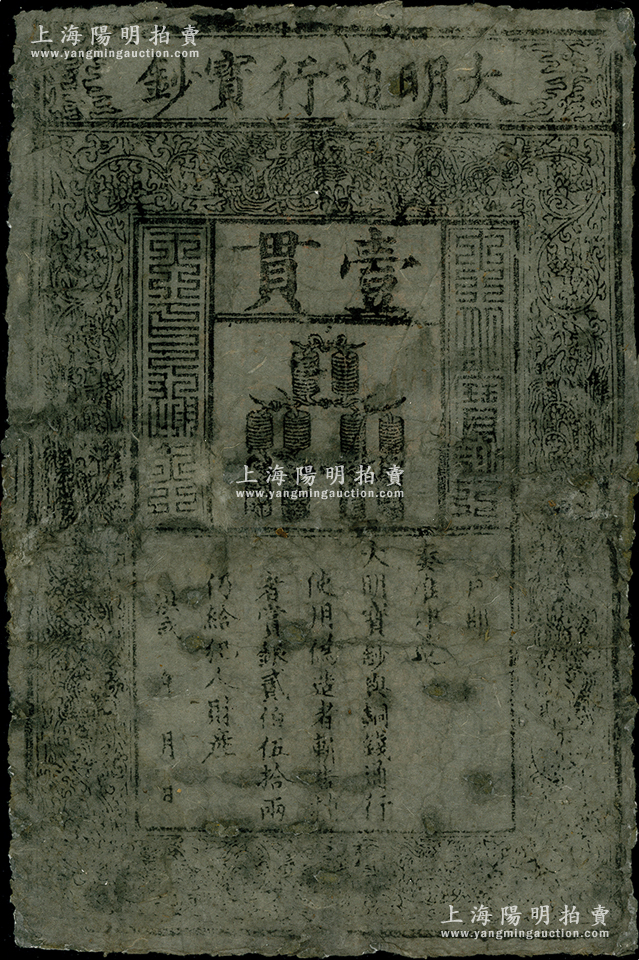 上海陽明拍賣
www.yangmingauction.com
大明通行寶鈔
壹貫
上海陽明拍賣
www.yangmingauction.com
戶部
奏准印造
大明寶鈔與銅錢通行
使用偽造者斬告捕
者賞銀貳伯伍拾兩
仍給犯人財產
洪武 年 月 日
上海陽明拍賣
www.yangmingauction.com